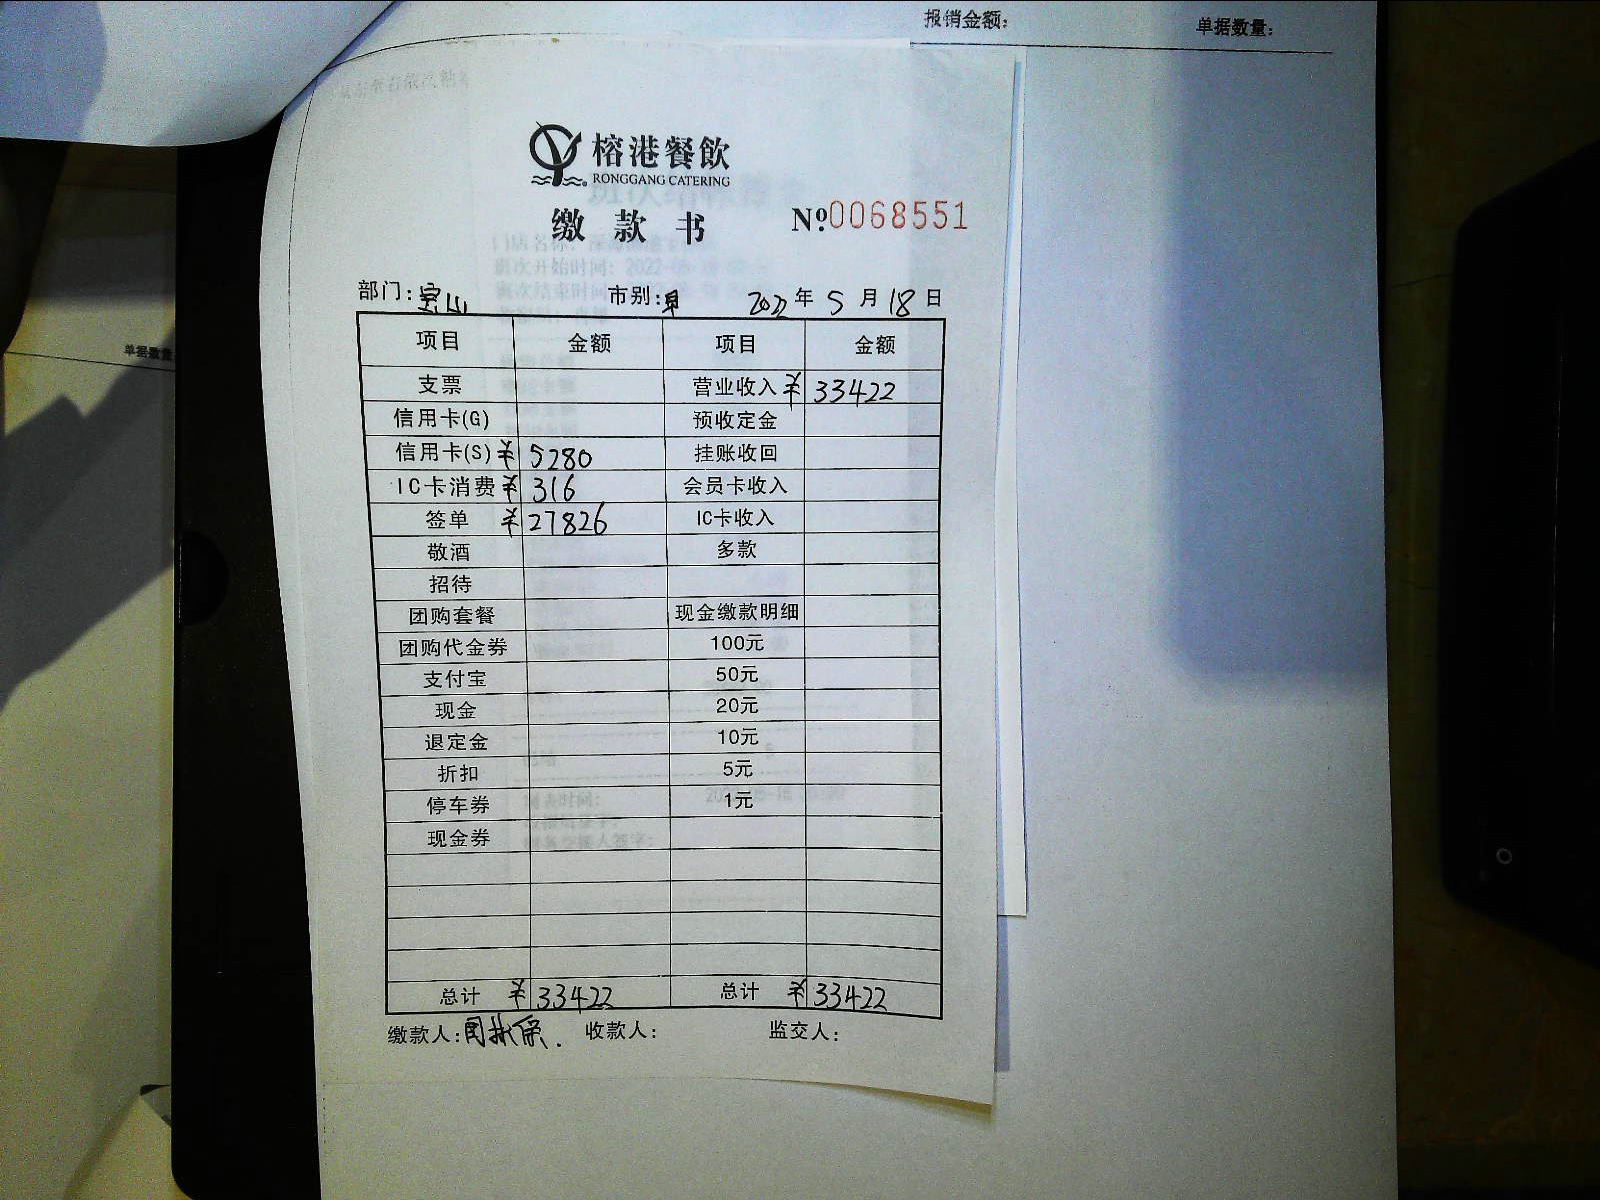 报销金额:
单据数量:
榕港餐飲
RONGGANG CATERING
缴款书
№:0068551
单据数量
部门:宝山 市别:早 2022年5月18日
项目 金额 项目 金额
支票 营业收入 ¥33422
信用卡(G) 预收定金
信用卡(S) ¥5280 挂账收回
IC卡消费 ¥316 会员卡收入
签单 ¥27826 IC卡收入
敬酒 多款
招待
团购套餐 现金缴款明细
团购代金券 100元
支付宝 50元
现金 20元
退定金 10元
折扣 5元
停车券 1元
现金券
总计 ¥33422 总计 ¥33422
缴款人: 收款人: 监交人: